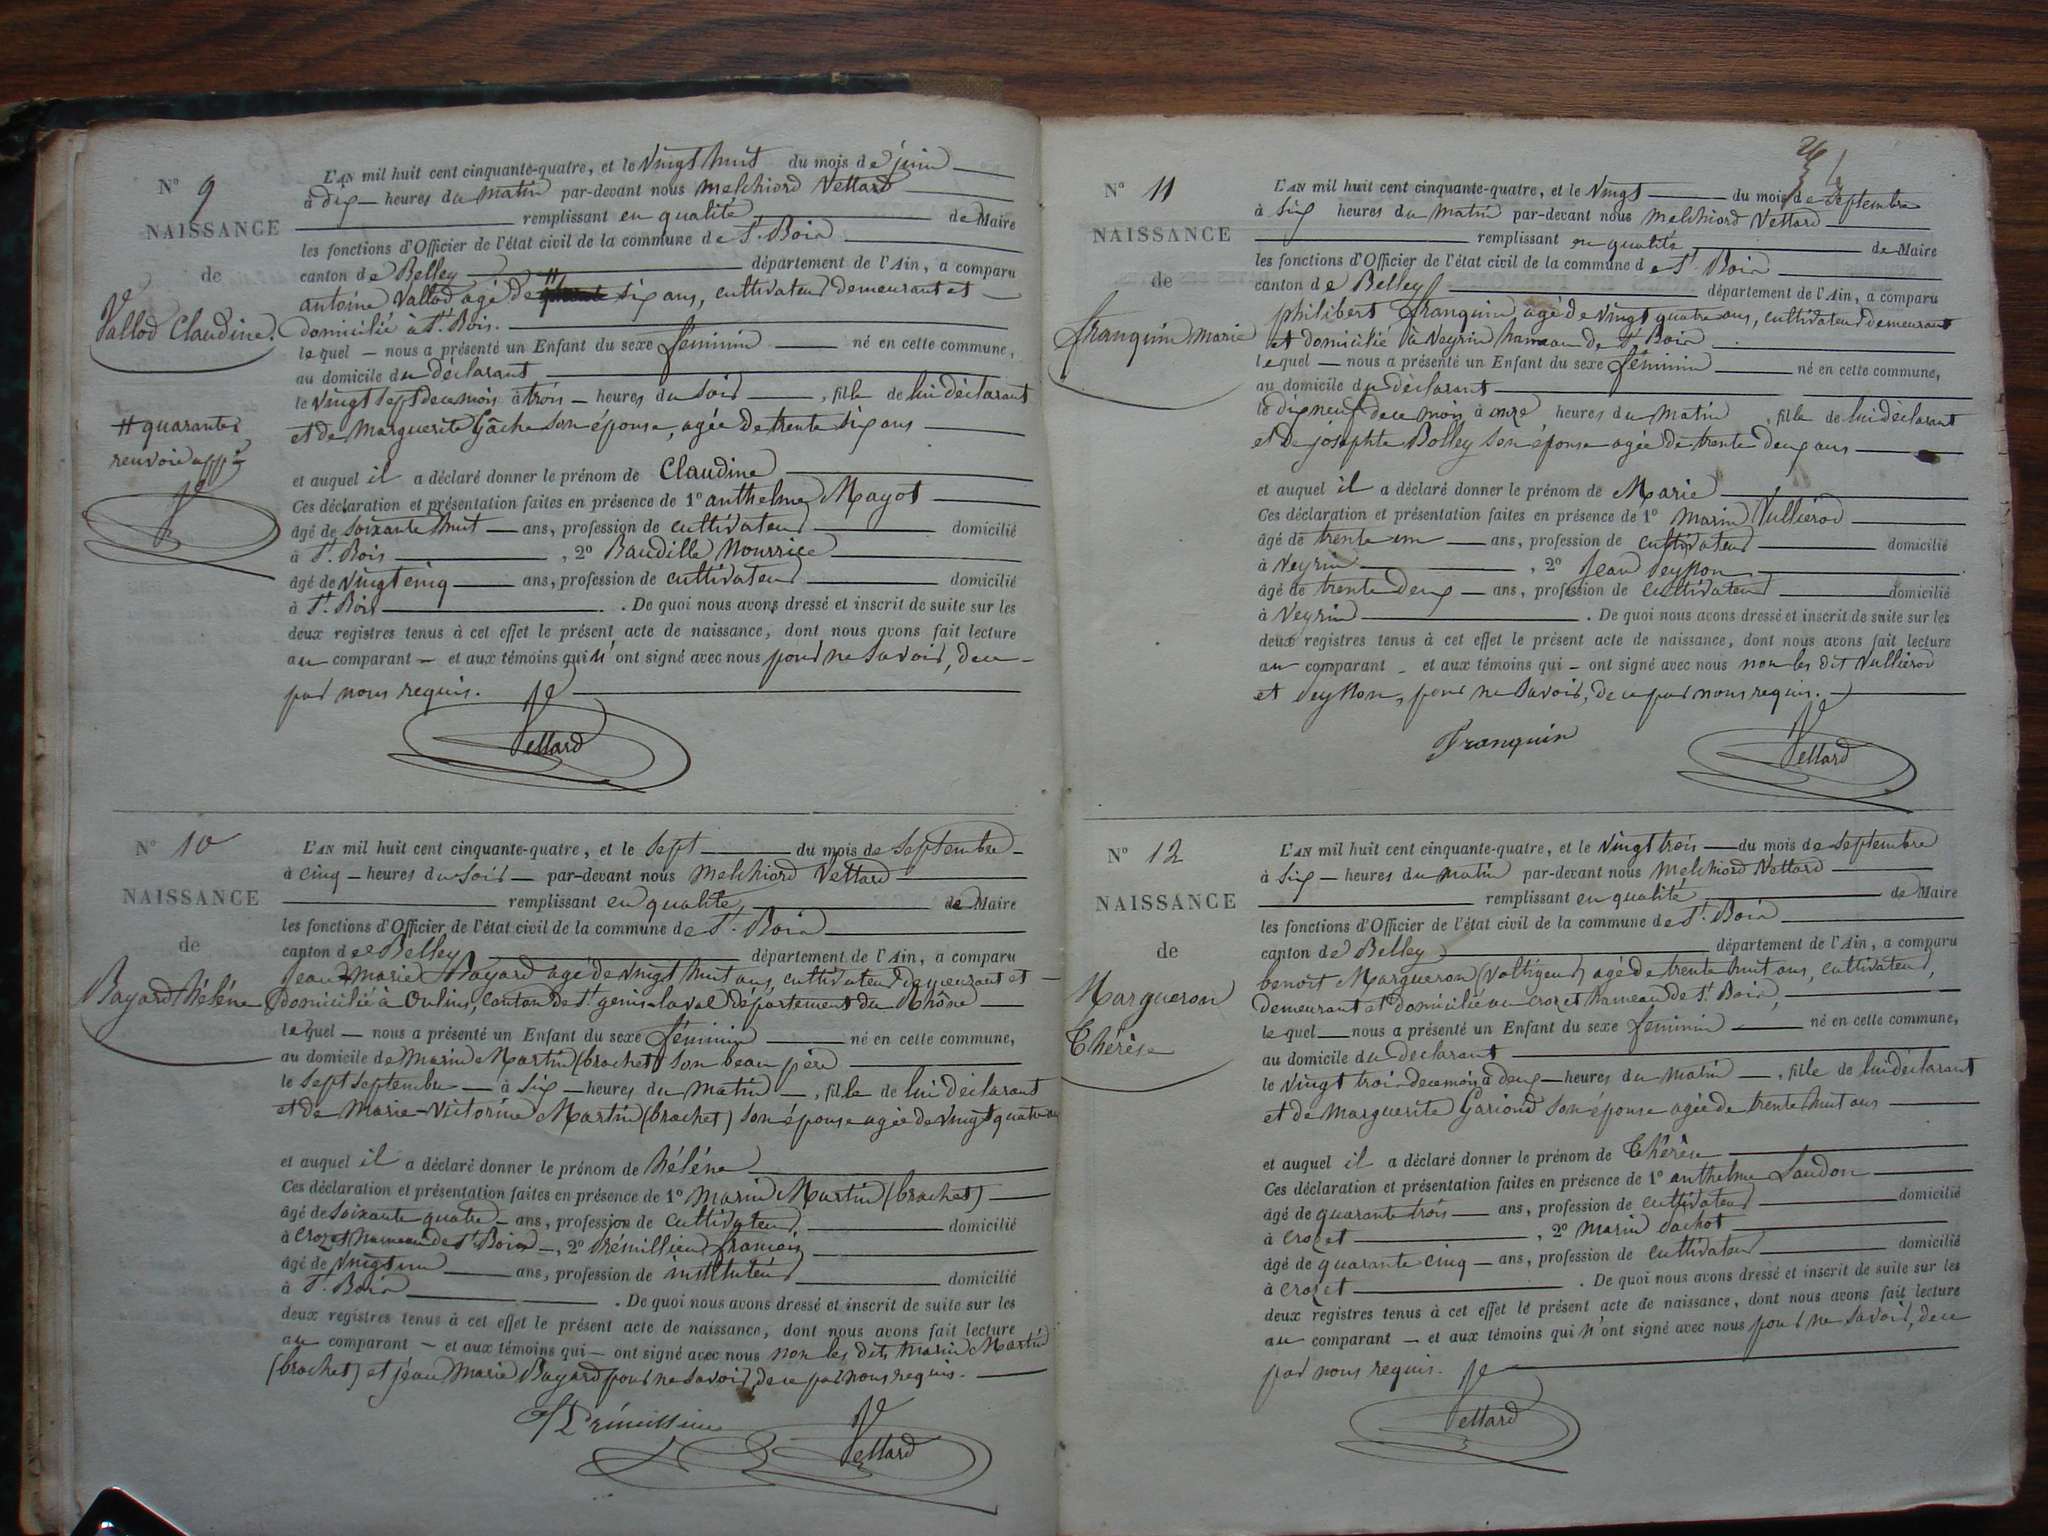 N° 9
NAISSANCE
de
Vallod Claudine.
# quarante
renvoi app
L'AN mil huit cent cinquante-quatre, et le vingt huit du mois de juin
à dix heures du matin par-devant nous Melchiord Vettard
remplissant en qualité de Maire
les fonctions d'Officier de l'état civil de la commune de St. Bois
canton de Belley département de l'Ain, a comparu
antoine Vallod agé de # six ans, cultivateur demeurant et
domicilié à St. Bois.
lequel nous a présenté un Enfant du sexe féminin né en cette commune,
au domicile du déclarant
le vingt sept de ce mois à trois heures du soir, fille de lui déclarant
et de Marguerite Gâche son épouse, agée de trente six ans
et auquel il a déclaré donner le prénom de Claudine
Ces déclaration et présentation faites en présence de 1° anthelme Magot
âgé de soixante huit ans, profession de cultivateur domicilié
à St. Bois, 2° Baudille Nourrice
âgé de vingt cinq ans, profession de cultivateur domicilié
à St. Bois. De quoi nous avons dressé et inscrit de suite sur les
deux registres tenus à cet effet le présent acte de naissance, dont nous avons fait lecture
au comparant et aux témoins qui n'ont signé avec nous pour ne savoir, de ce
par nous requis.
Vettard
N° 10
NAISSANCE
de
Bayard Héléne
L'AN mil huit cent cinquante-quatre, et le sept du mois de septembre
à cinq heures du soir par-devant nous Melchiord Vettard
remplissant en qualité de Maire
les fonctions d'Officier de l'état civil de la commune de St. Bois
canton de Belley département de l'Ain, a comparu
Jean Marie Bayard agé de vingt huit ans, cultivateur demeurant et
domicilié à Oulins, canton de St. genis-laval département du Rhône
lequel nous a présenté un Enfant du sexe féminin né en cette commune,
au domicile de Marin Martin (brachet) son beau père
le sept septembre à six heures du matin, fille de lui déclarant
et de Marie-Victorine Martin (brachet) son épouse agée de vingt quatre ans
et auquel il a déclaré donner le prénom de Héléne
Ces déclaration et présentation faites en présence de 1° Marin Martin (brachet)
âgé de soixante quatre ans, profession de cultivateur domicilié
à crozet hameau de St. Bois, 2° Prémillieu françois
âgé de vingt un ans, profession de instituteur domicilié
à St. Bois. De quoi nous avons dressé et inscrit de suite sur les
deux registres tenus à cet effet le présent acte de naissance, dont nous avons fait lecture
au comparant et aux témoins qui ont signé avec nous non les dits Marin Martin
(brachet) et jean Marie Bayard pour ne savoir, de ce par nous requis.
Prémillieu
Vettard
N° 11
NAISSANCE
de
franquin marie
L'AN mil huit cent cinquante-quatre, et le vingt du mois de septembre
à six heures du matin par-devant nous Melchiord Vettard
remplissant en qualité de Maire
les fonctions d'Officier de l'état civil de la commune de St. Bois
canton de Belley département de l'Ain, a comparu
philibert franquin agé de vingt quatre ans, cultivateur demeurant
et domicilié à Veyrin hameau de St. Bois
lequel nous a présenté un Enfant du sexe féminin né en cette commune,
au domicile du déclarant
le dix neuf de ce mois à onze heures du matin, fille de lui déclarant
et de josephte Bolley son épouse agée de trente deux ans
et auquel il a déclaré donner le prénom de Marie
Ces déclaration et présentation faites en présence de 1° Marin Vulliérod
âgé de trente un ans, profession de cultivateur domicilié
à Veyrin, 2° Jean Peysson
âgé de trente deux ans, profession de cultivateur domicilié
à Veyrin. De quoi nous avons dressé et inscrit de suite sur les
deux registres tenus à cet effet le présent acte de naissance, dont nous avons fait lecture
au comparant et aux témoins qui ont signé avec nous non les dit Vulliérod
et Peysson, pour ne savoir, de ce par nous requis.
Franquin
Vettard
N° 12
NAISSANCE
de
Margueron
Thérèse
L'AN mil huit cent cinquante-quatre, et le vingt trois du mois de septembre
à six heures du matin par-devant nous Melchiord Vettard
remplissant en qualité de Maire
les fonctions d'Officier de l'état civil de la commune de St. Bois
canton de Belley département de l'Ain, a comparu
benoit Margueron (voltigeur) agé de trente huit ans, cultivateur,
demeurant et domicilié au crozet hameau de St. Bois,
lequel nous a présenté un Enfant du sexe féminin né en cette commune,
au domicile du déclarant
le vingt trois de ce mois à deux heures du matin, fille de lui déclarant
et de Marguerite Gariond son épouse agée de trente huit ans
et auquel il a déclaré donner le prénom de Thérèse
Ces déclaration et présentation faites en présence de 1° anthelme Laudon
âgé de quarante trois ans, profession de cultivateur domicilié
à crozet, 2° marin Cachot
âgé de quarante cinq ans, profession de cultivateur domicilié
à crozet. De quoi nous avons dressé et inscrit de suite sur les
deux registres tenus à cet effet le présent acte de naissance, dont nous avons fait lecture
au comparant et aux témoins qui n'ont signé avec nous pour ne savoir, de ce
par nous requis.
Vettard